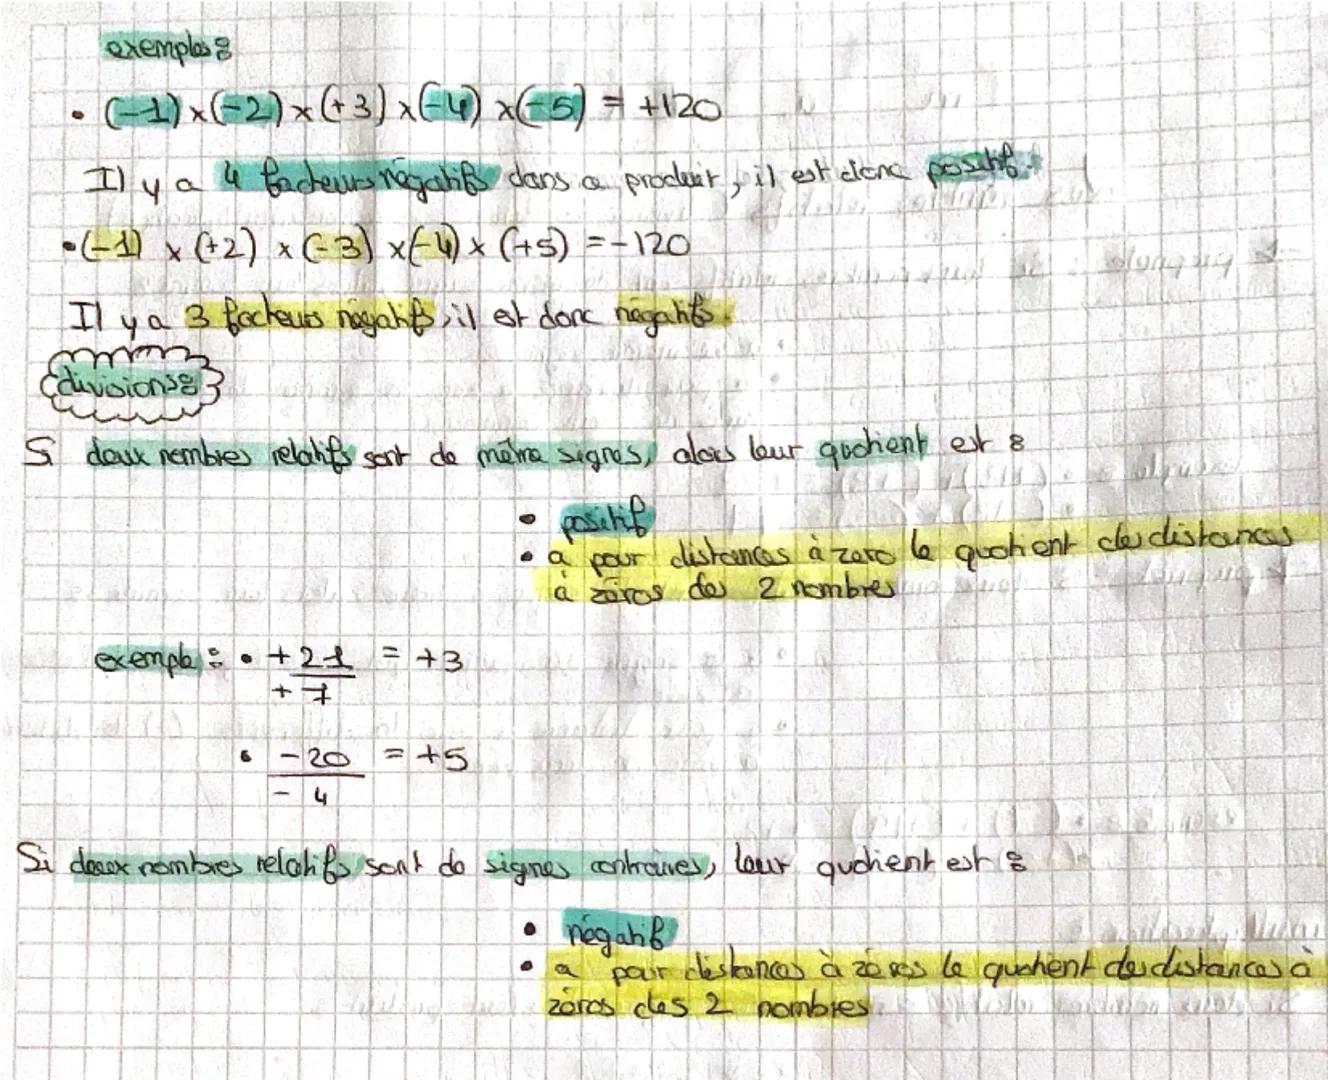 exemples :
• (-1) × (-2) × (+3) × (-4) × (-5) = +120
Il y a 4 facteurs négatifs dans ce produit, il est donc positif.
• (-1) × (+2) × (-3) × (-4) × (+5) = -120
Il y a 3 facteurs négatifs, il est donc négatifs.
divisions :
Si deux nombres relatifs sont de même signes, alors leur quotient est :
• positif
• a pour distances à zero le quotient des distances
à zéros des 2 nombres
exemple : • +21 = +3
+7
• -20 = +5
- 4
Si deux nombres relatifs sont de signes contraires, leur quotient est :
• négatif
• a pour distances à zéros le quotient des distances à
zéros des 2 nombres